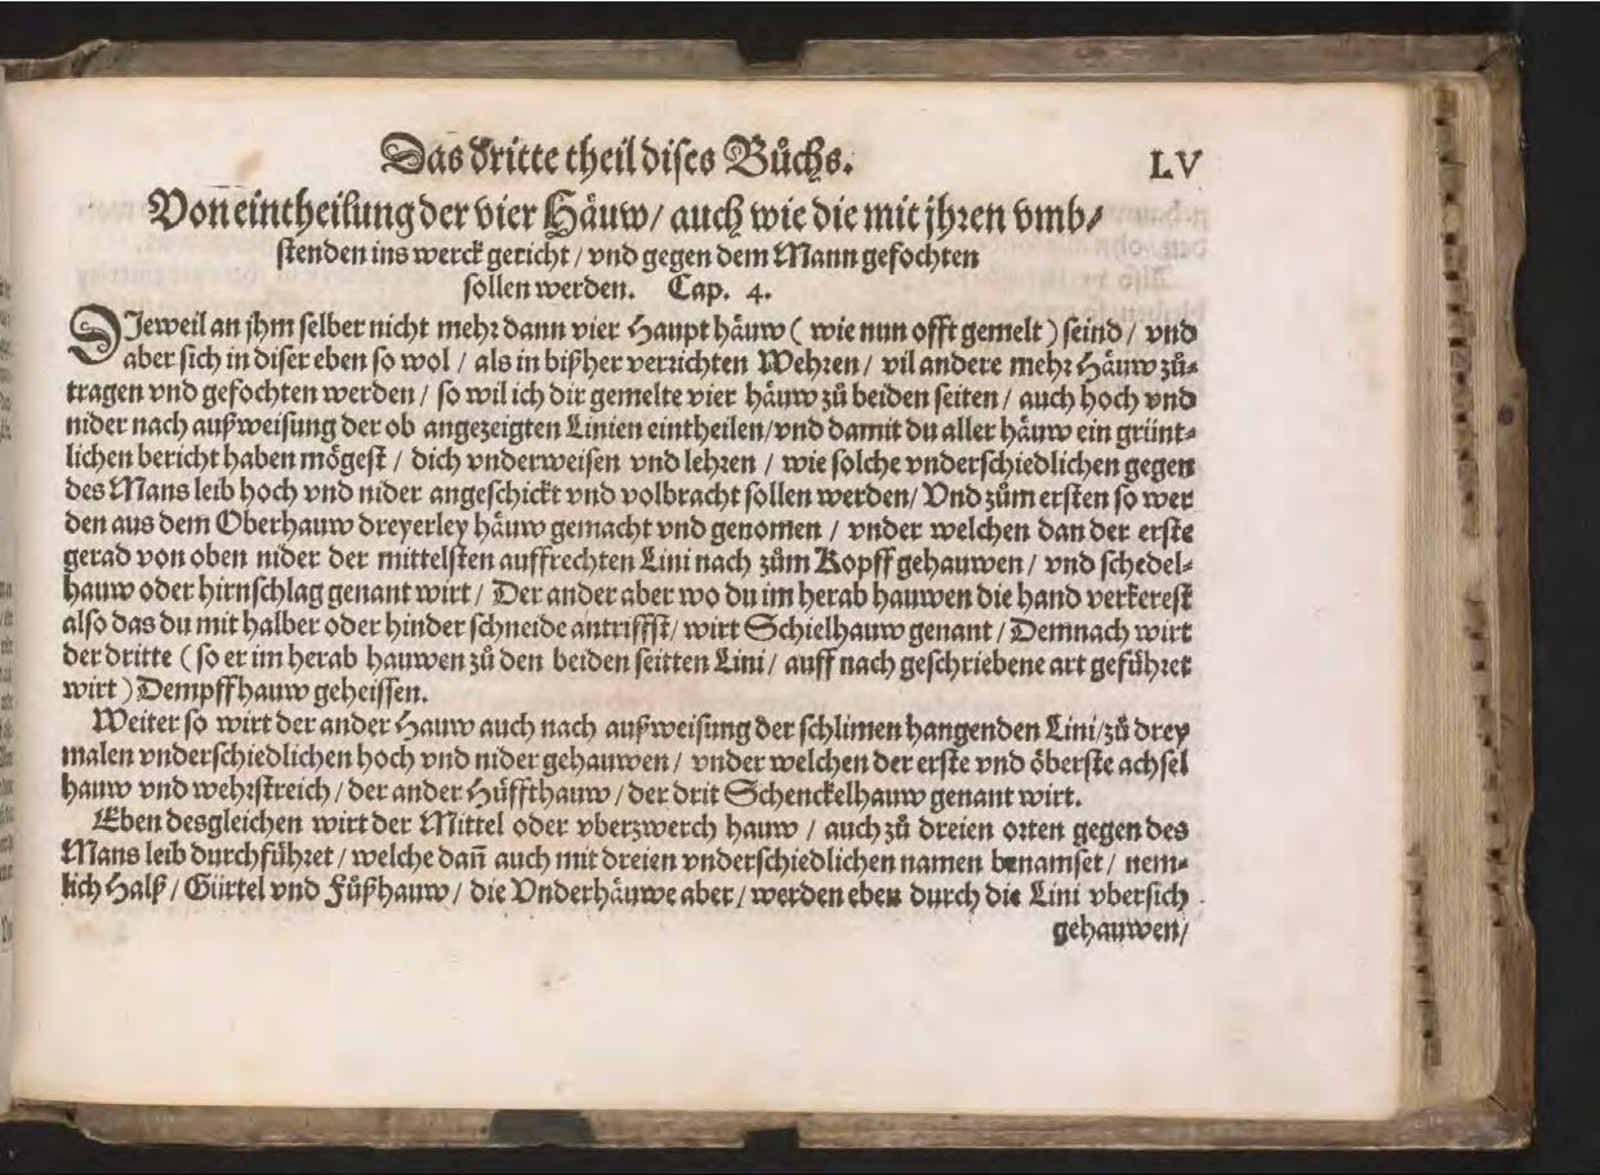 Das dritte theil dises Bůchs. LV
Von eintheilung der vier Häuw/ auch wie die mit jhren vmb/
stenden ins werck gericht / vnd gegen dem Mann gefochten
sollen werden. Cap. 4.
DJeweil an jhm selber nicht mehr dann vier Haupt häuw ( wie nun offt gemelt ) seind / vnd
aber sich in diser eben so wol / als in bißher verrichten Wehren / vil andere mehr Häuw zů-
tragen vnd gefochten werden / so wil ich dir gemelte vier häuw zů beiden seiten / auch hoch vnd
nider nach außweisung der ob angezeigten Linien eintheilen/vnd damit du aller häuw ein grünt-
lichen bericht haben mögest / dich vnderweisen vnd lehren / wie solche vnderschiedlichen gegen
des Mans leib hoch vnd nider angeschickt vnd volbracht sollen werden/ Vnd zům ersten so wer
den aus dem Oberhauw dreyerley häuw gemacht vnd genomen / vnder welchen dan der erste
gerad von oben nider der mittelsten auffrechten Lini nach zům Kopff gehauwen / vnd schedel-
hauw oder hirnschlag genant wirt / Der ander aber wo du im herab hauwen die hand verkerest
also das du mit halber oder hinder schneide antriffst/ wirt Schielhauw genant / Demnach wirt
der dritte ( so er im herab hauwen zů den beiden seitten Lini / auff nach geschriebene art geführet
wirt ) Dempffhauw geheissen.
Weiter so wirt der ander Hauw auch nach außweisung der schlimen hangenden Lini/zů drey
malen vnderschiedlichen hoch vnd nider gehauwen / vnder welchen der erste vnd öberste achsel
hauw vnd wehrstreich / der ander Hüffthauw / der drit Schenckelhauw genant wirt.
Eben desgleichen wirt der Mittel oder vberzwerch hauw / auch zů dreien orten gegen des
Mans leib durchführet / welche dañ auch mit dreien vnderschiedlichen namen benamset / nem-
lich Halß / Gürtel vnd Fůßhauw / die Vnderhäuwe aber / werden eben durch die Lini vbersich
gehauwen/